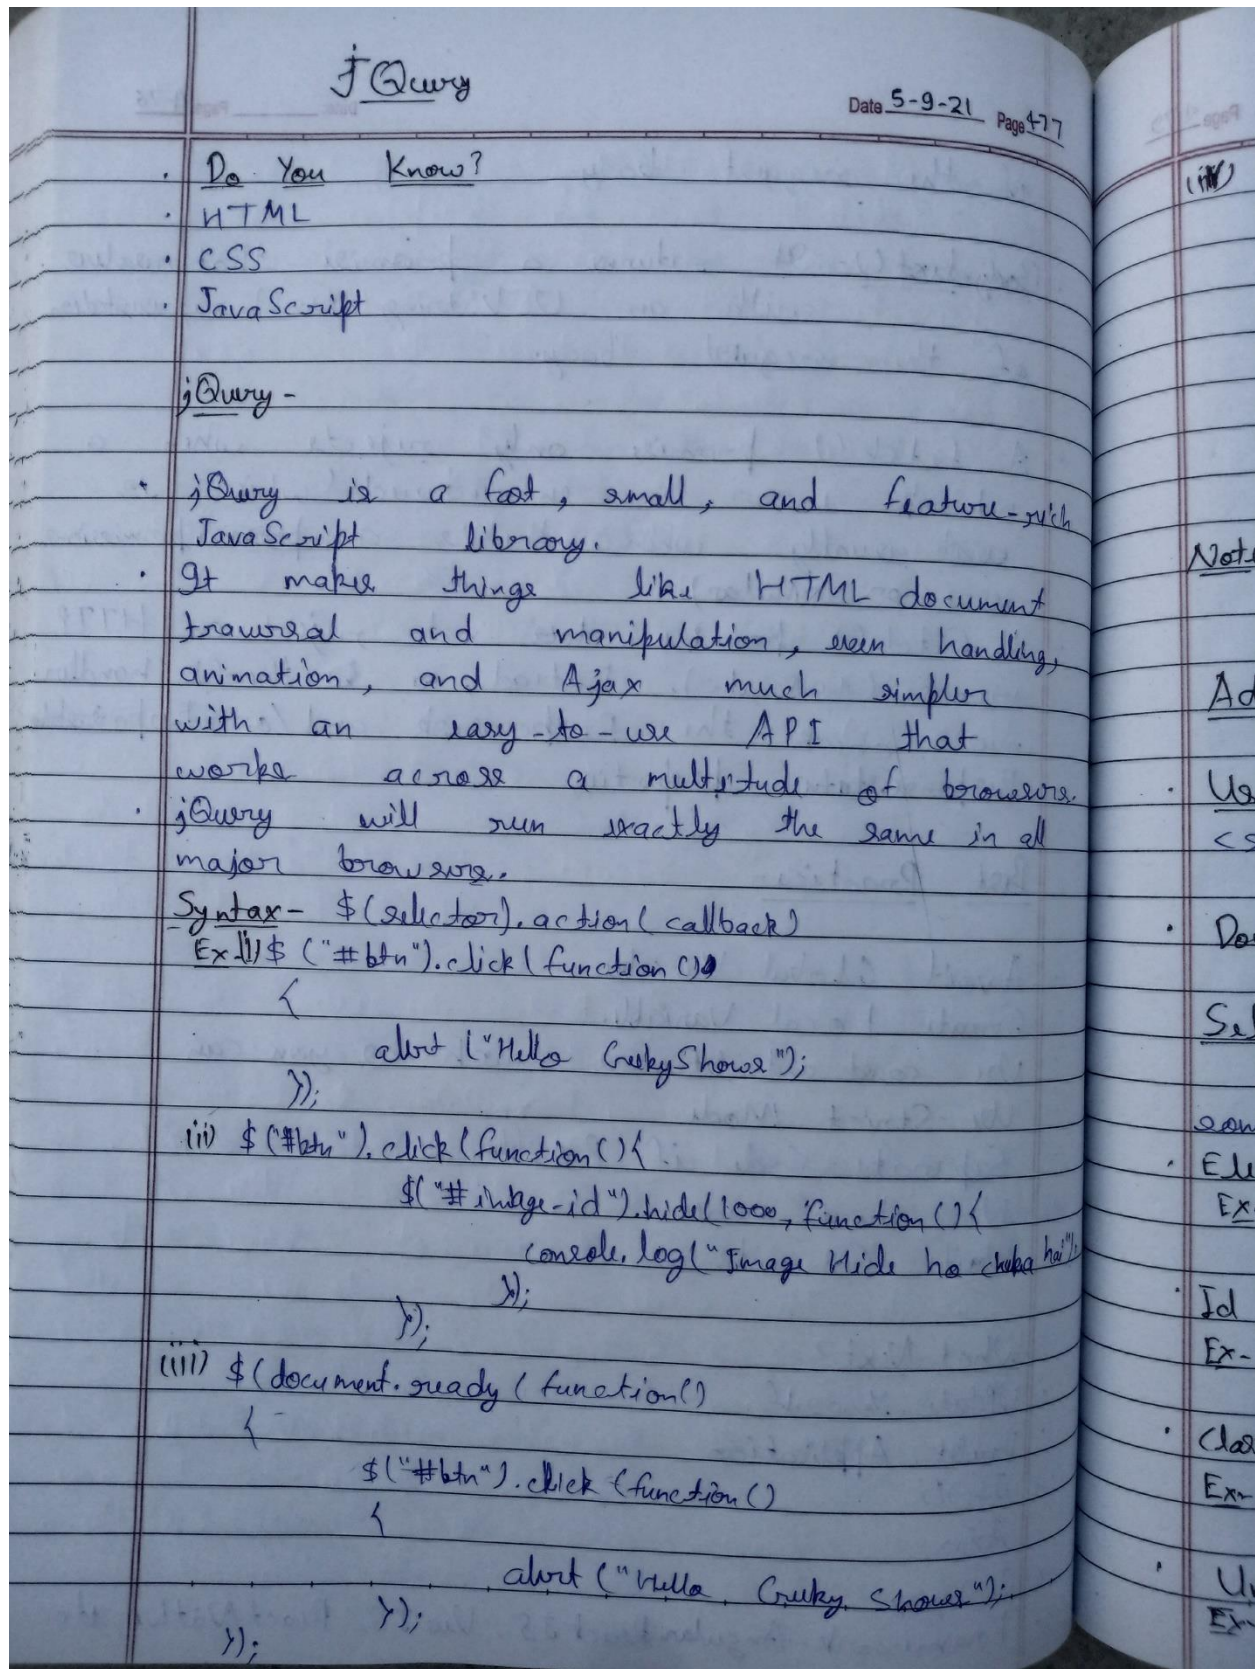 jQuery
Date 5-9-21 Page 477
. Do You Know?
. HTML
. CSS
. JavaScript
jQuery -
. jQuery is a fast, small, and feature-rich
JavaScript library.
. It makes things like HTML document
traversal and manipulation, even handling,
animation, and Ajax much simpler
with an easy-to-use API that
works across a multitude of browsers.
. jQuery will run exactly the same in all
major browsers.
Syntax - $(selector).action(callback)
Ex (i) $("#btn").click(function()
{
alert ("Hello GeekyShows");
});
(ii) $("#btn").click(function(){
$("#image-id").hide(1000, function(){
console.log("Image Hide ho chuka hai");
});
});
(iii) $(document.ready(function()
{
$("#btn").click(function()
{
alert ("Hello Geeky Shows");
});
});
Note
Ad
. Us
<s
. Do
Sel
. Ele
Ex-
. Id
Ex-
. Clas
Ex-
. Un
Ex-